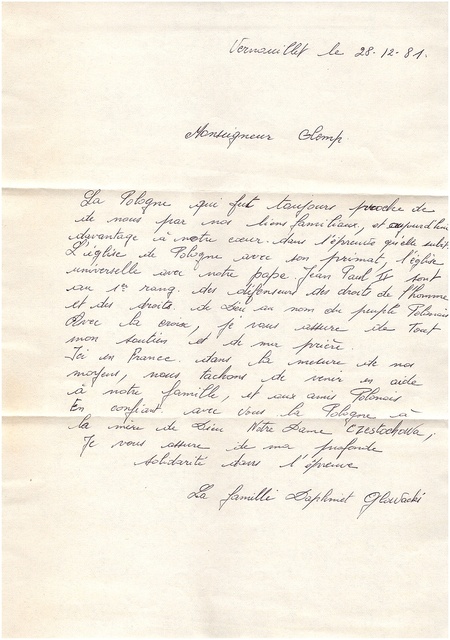 Vernouillet le 28-12-81.
Monseigneur Glemp
La Pologne qui fut toujours proche de
de nous par nos liens familiaux, est aujourd'hui
davantage à notre cœur. dans l'épreuve qu'elle subit.
L'église de Pologne avec son primat, l'église
universelle avec notre pape Jean Paul II sont
au 1er rang. des défenseurs des droits de l'homme
et des droits. de Dieu au nom du peuple Polonais
Avec la croix, je vous assure de tout
mon soutien et de ma prière.
Ici en France. dans la mesure de nos
moyens, nous tachons de venir en aide
à notre famille, et aux amis Polonais
En confiant avec vous la Pologne à
la mère de Dieu Notre Dame Czestochowa,
Je vous assure de ma profonde
solidarité dans l'épreuve
La famille Daphmet Glowacki